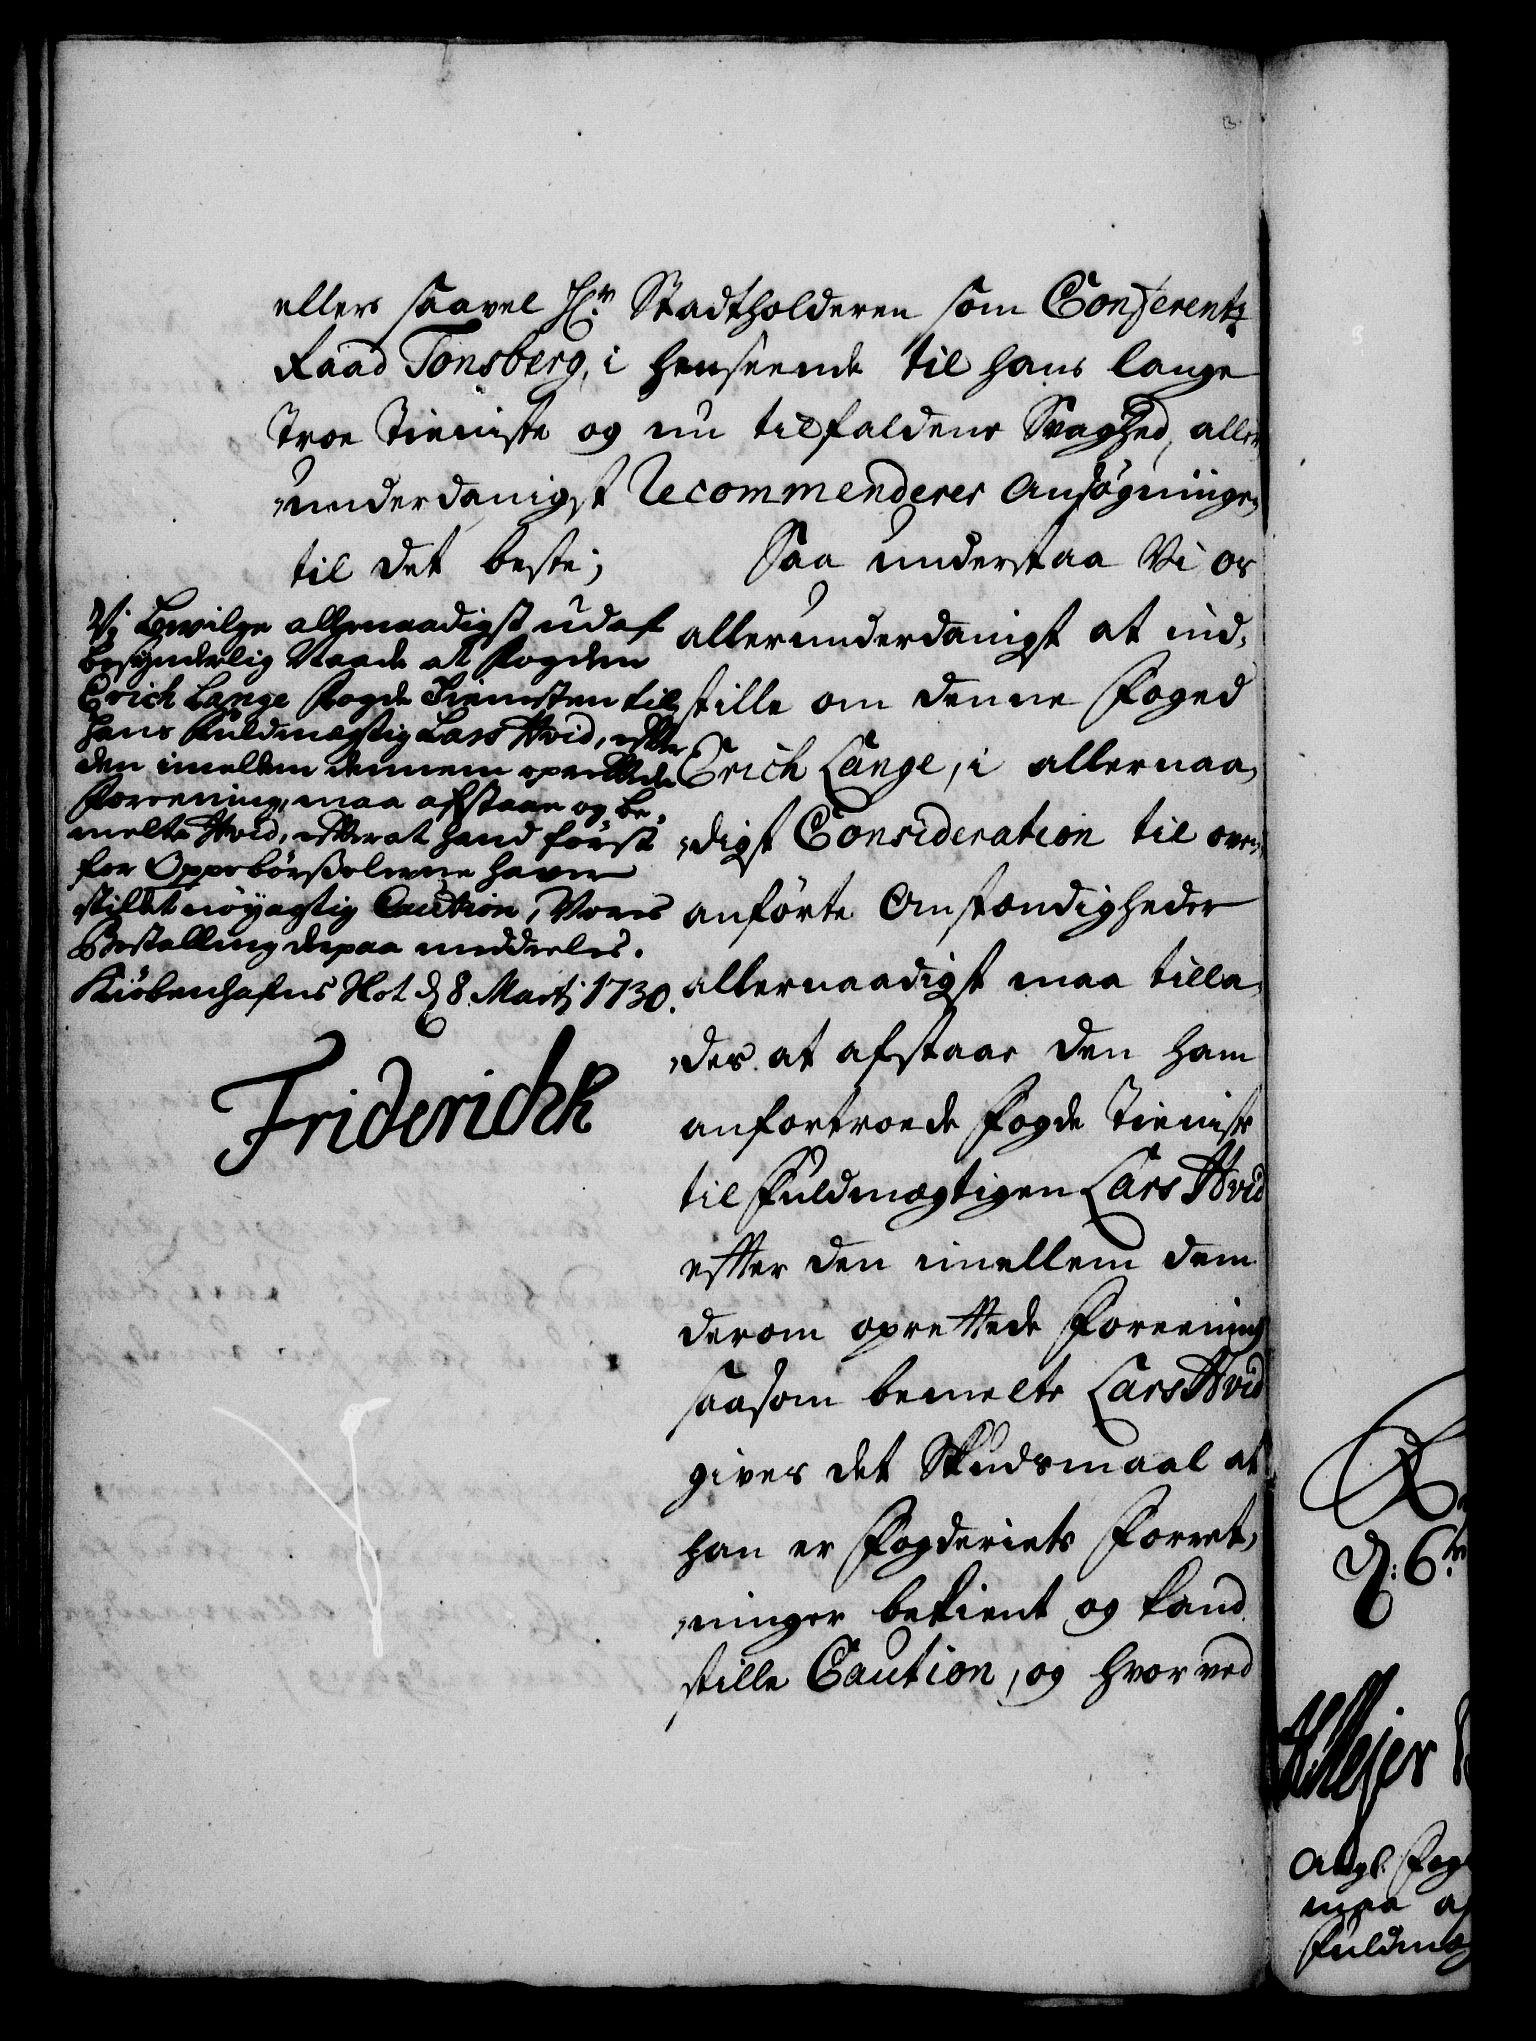 ellers saavel Hr. Stadtholderen som Conferentz
Raad Tonsberg, i henseende til hans lange
troe tieniste og nu tilfaldene Svaghed, aller
underdanigst Recommenderer Ansøgninge,
til det beste; Saa understaa Vi os
allerunderdanigst at ind,
stille om denne Foged
Erich Lange, i allernaa,
digst Consideration til oven
anførte Omstændigheder
allernaadigst maa tilla,
des at afstaae den ham
anfortroede Fogde tienist
til Fuldmægtigen Lars Hvid
efter den imellem dem
derom oprettede Foreening
saasom bemelte Lars Hvid
gives det Skudsmaal at
han er Fogderiets Forret,
ninger bekient og kand
stille Caution, og hvorved
Vj Bevilge allernaadigst udaf
besynderlig Naade at Fogden
Erich Lange Fogde Tienisten til
hans Fuldmægtig Lars Hvid, efter
den imellem dennem oprettede
Foreening, maa afstaae og be,
melte Hvid, efterat hand først
for Oppebørsßelerne haver
stillet nøyagtig Caution, Vores
Bestalling derpaa meddeeles.
Kiøbenhafns Slot d 8 Martj 1730.
Friderich R
d: 6te
Angl. Fog
maa af
Fuldmæg